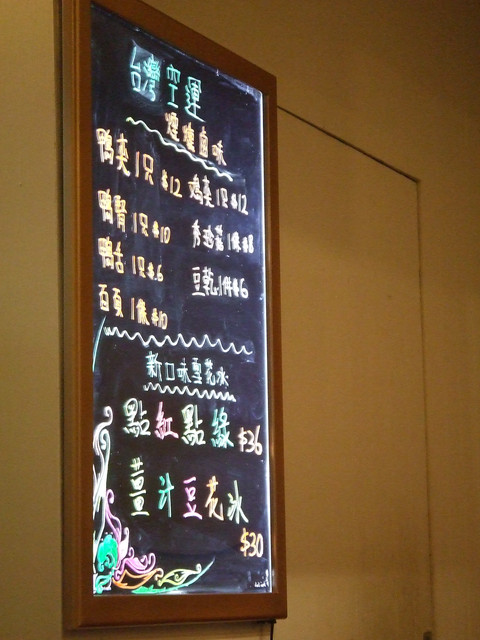 台灣空運
煙燻鹵味
鴨夾1只$12
鴨腎1只$10
鴨舌1只$.6
百頁1條$10
鸡夾1只$12
秀珍菇1條$8
豆乾1件$6
新口味雪花冰
點紅點綠$36
薑汁豆花冰
$30